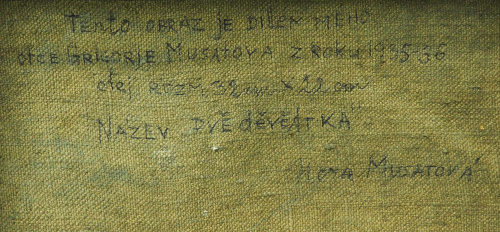 TENTO OBRAZ JE DÍLEM MÉHO
OTCE GRIGORJE MUSATOVA Z ROKU 1935-36
olej ROZM. 32 cm × 22 cm
NÁZEV „DVĚ děvčátka"
MUSATOVÁ